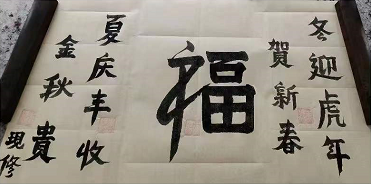 冬迎虎年
賀新春
福
夏庆丰收
金秋貴
現修